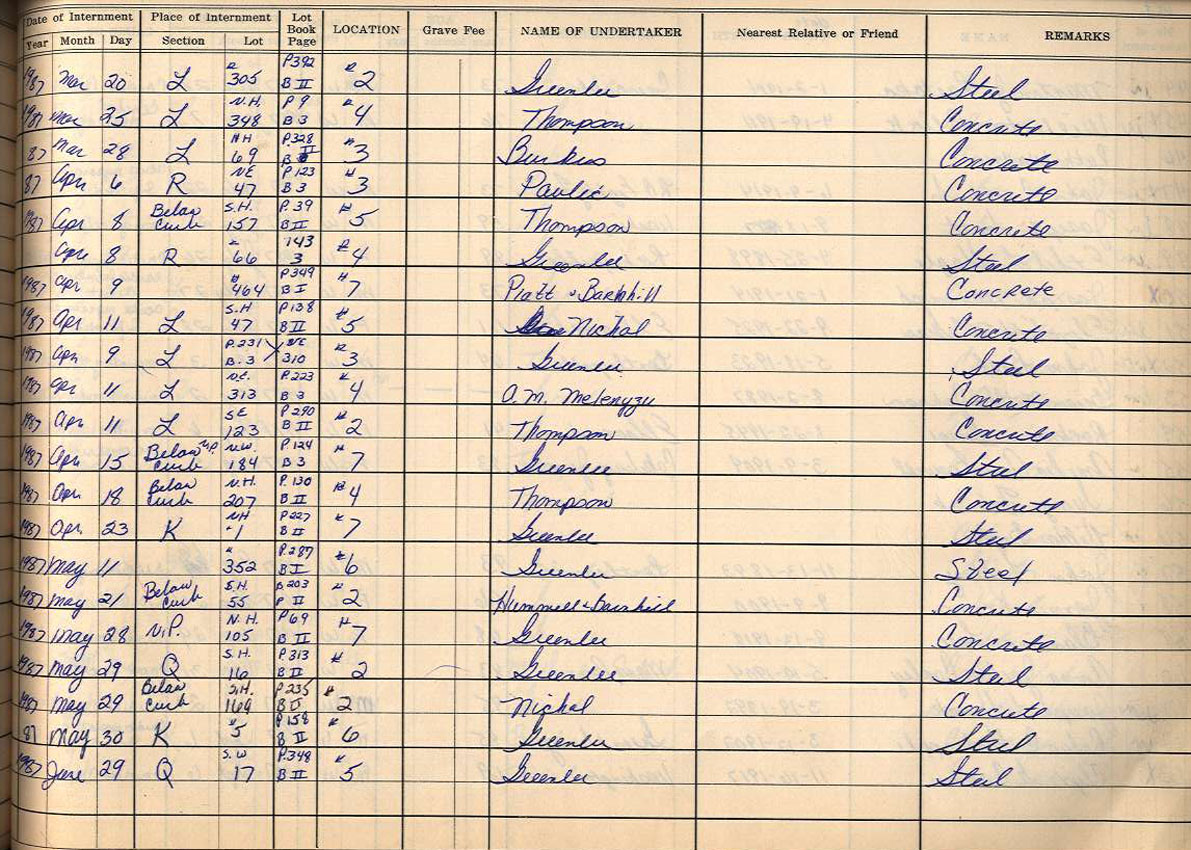 Date of Internment Place of Internment Lot Book Page LOCATION Grave Fee NAME OF UNDERTAKER Nearest Relative or Friend REMARKS
Year Month Day Section Lot
1987 Mar 20 L # 305 P392 B II # 2 Greenlee Steel
1987 Mar 25 L N.H. 348 P 9 B 3 # 4 Thompson Concrete
87 Mar 28 L NH 69 P328 B II # 3 Burkus Concrete
87 Apr 6 R NE 47 P123 B 3 # 3 Pavlic Concrete
1987 Apr 8 Below Curb S.H. 157 P. 39 B II # 5 Thompson Concrete
Apr 8 R # 66 143 3 # 4 Greenlee Steel
1987 Apr 9 # 464 P349 B I # 7 Piatt & Barnhill Concrete
1987 Apr 11 L S.H 47 P138 B II # 5 Nichol Concrete
1987 Apr 9 L P.231 B. 3 NE 310 # 3 Greenlee Steel
1987 Apr 11 L N.E. 313 P223 B 3 # 4 A. M. Concrete
1987 Apr 11 L SE 123 P290 B II # 2 Thompson Concrete
1987 Apr 15 Below N.P. Curb N.W. 184 P124 B 3 # 7 Greenlee Steel
1987 Apr 18 Below Curb N.H. 207 P. 130 B II # 4 Thompson Concrete
1987 Apr. 23 K NH #1 P227 B II # 7 Greenlee Steel
1987 May 11 # 352 P.287 B I # 6 Greenlee Steel
1987 May 21 Below Curb S.H. 55 B 203 P II # 2 Hummell & Barnhill Concrete
1987 May 28 N.P. N.H. 105 P 69 B II # 7 Greenlee Concrete
1987 May 29 Q S.H. 16 P313 B II # 2 Greenlee Steel
1987 May 29 Below Curb S.H. 169 P235 # 2 Nichol Concrete
87 May 30 K # 5 P158 B II # 6 Greenlee Steel
1987 June 29 Q S.W 17 P.348 B II # 5 Greenlee Steel